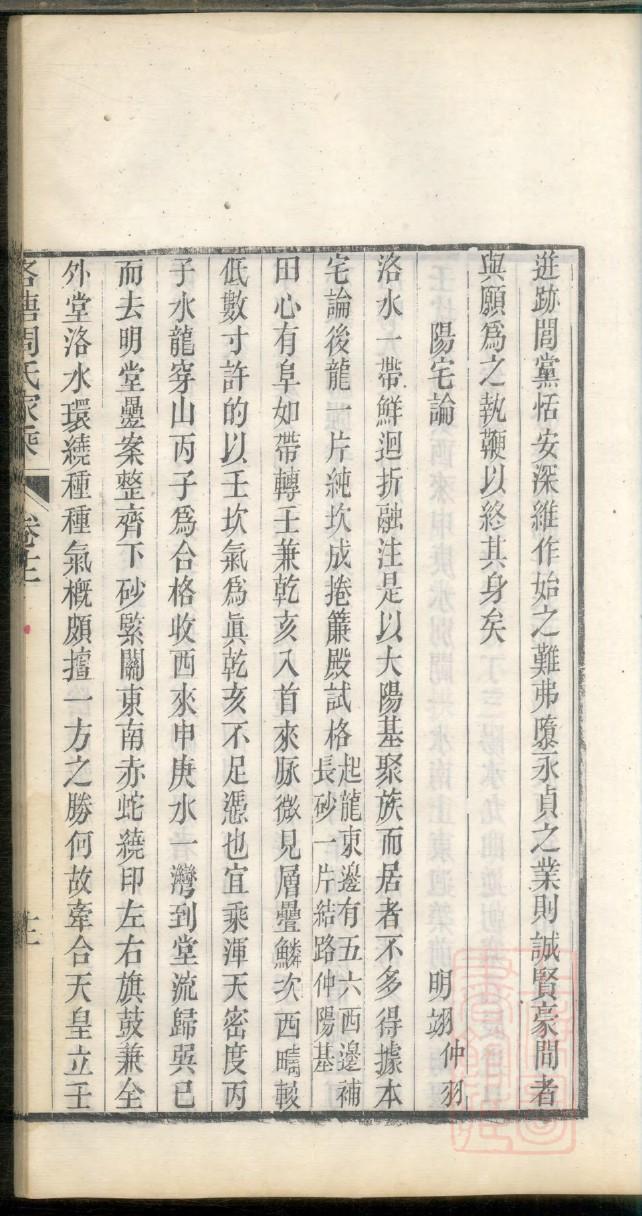 遊跡閭黨恬安深維作始之難弗隳永貞之業則誠賢豪間者
與願爲之執鞭以終其身矣
陽宅論
明翊仲羽
洛水一帶鮮迴折融注是以大陽基聚族而居者不多得據本
宅論後龍一片純坎成捲簾殿試格起龍東邊有五六西邊補
長砂一片結路仲陽基
田心有阜如帶轉壬兼乾亥入首來脉微見層疊鱗次西疇較
低數寸許的以壬坎氣爲眞乾亥不足憑也宜乘渾天密度丙
子水龍穿山丙子爲合格收西來申庚水一灣到堂流歸巽巳
而去明堂壘案整齊下砂緊關東南赤蛇繞印左右旗鼓兼全
外堂洛水環繞種種氣概頗擅一方之勝何故牽合天皇立壬
周氏家乘
卷十二
十二